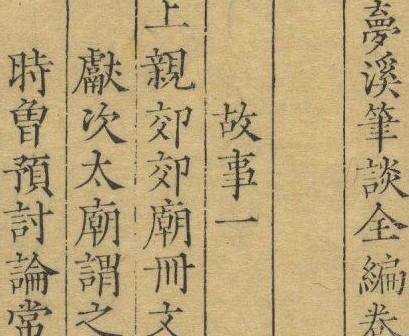 夢溪筆談全編卷
故事一
上親郊郊廟冊文
獻次太廟謂之
時曾預討論常